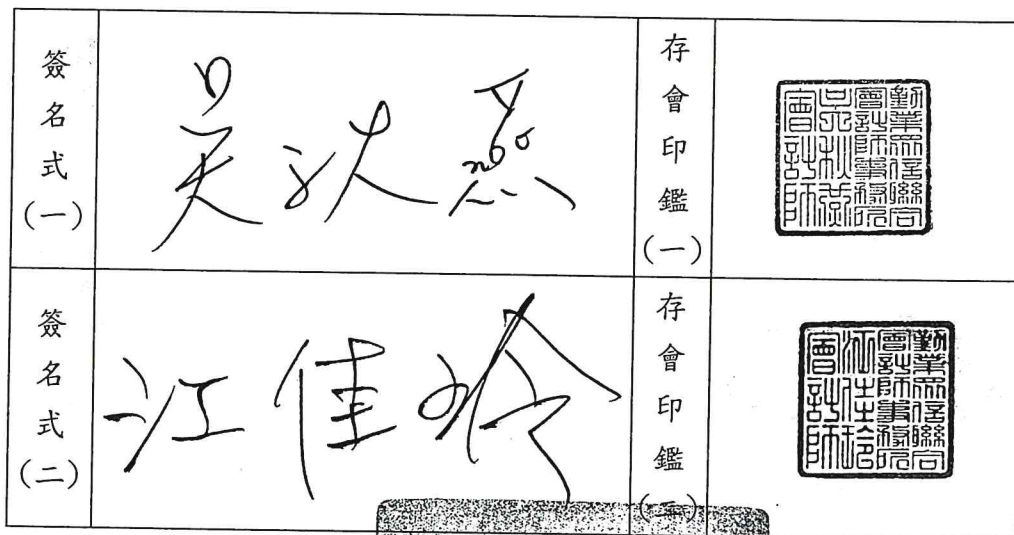 簽名式(一)
吳秋燕
存會印鑑(一)
勤業眾信聯合
會計師事務所
吳秋燕
會計師
簽名式(二)
江佳玲
存會印鑑(二)
勤業眾信聯合
會計師事務所
江佳玲
會計師